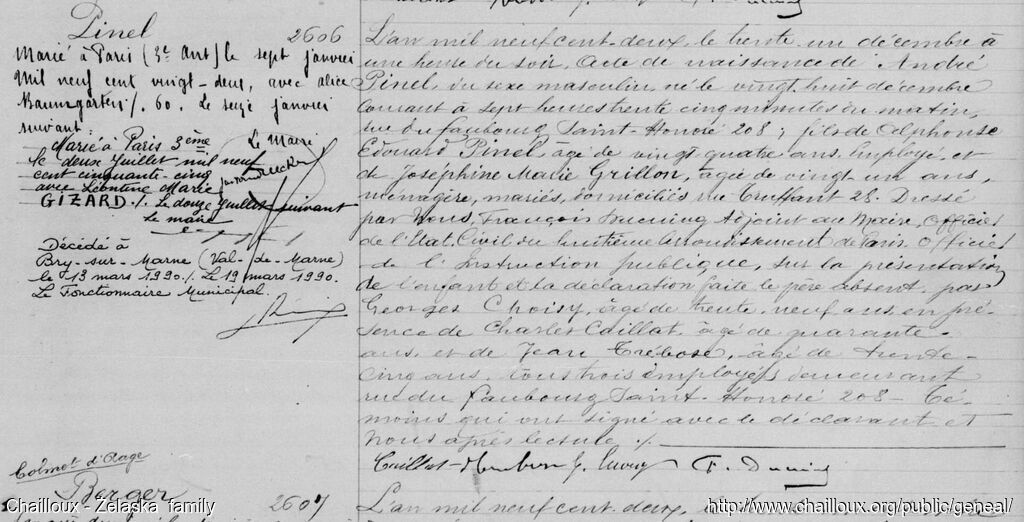 Pinel
2606
Marié à Paris (3e Arrt) le sept janvier
Mil neuf cent vingt-deux, avec alice
Baumgarten ./. 60. Le seize janvier
suivant.
Le Maire
Marié à Paris 3ème
le deux juillet mil neuf
cent cinquante-cinq
avec Léontine Marie
GIZARD ./. Le douze juillet suivant
Le maire
Décédé à
Bry-sur-Marne (Val-de-Marne)
le 13 mars 1990 ./. Le 19 mars 1990.
Le Fonctionnaire Municipal.
L'an mil neuf cent-deux, le trente-un décembre à
une heure du soir. Acte de naissance de André
Pinel, du sexe masculin, né le vingt huit décembre
courant à sept heures trente cinq minutes du matin,
rue du faubourg Saint-Honoré 208; fils de Alphonse
Edouard Pinel, âgé de vingt quatre ans, Employé, et
de Joséphine Marie Grillon, âgée de vingt un ans,
ménagère, mariés, domiciliés rue Truffaut 28. Dressé
par Nous, François Adjoint au Maire, Officier
de l'Etat Civil du huitième arrondissement de Paris, Officier
de l'Instruction publique, sur la présentation
de l'enfant et la déclaration faite le père absent, par
Georges Choisy, âgé de trente-neuf ans en pré-
sence de Charles Caillat, âgé de quarante-
ans, et de Jean Trébose, âgé de trente-
cinq ans, tous trois employés demeurant
rue du Faubourg Saint-Honoré 208 - Té-
moins qui ont signé avec le déclarant et
Nous après lecture ./.
Colmet d'Aage
Berger
2607
L'an mil neuf cent-deux, le
Chailloux - Zelaska family
http://www.chailloux.org/public/geneal/